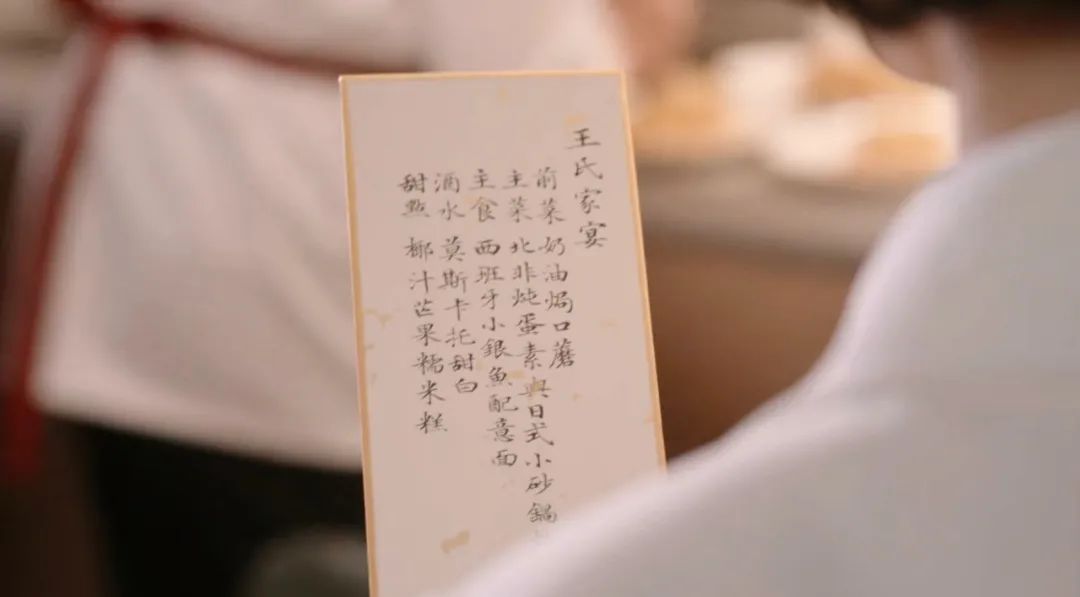 王氏家宴
前菜 奶油焗口蘑
主菜 北非炖蛋素與日式小砂鍋
主食 西班牙小銀魚配意面
酒水 莫斯卡托甜白
甜點 椰汁芒果糯米糕